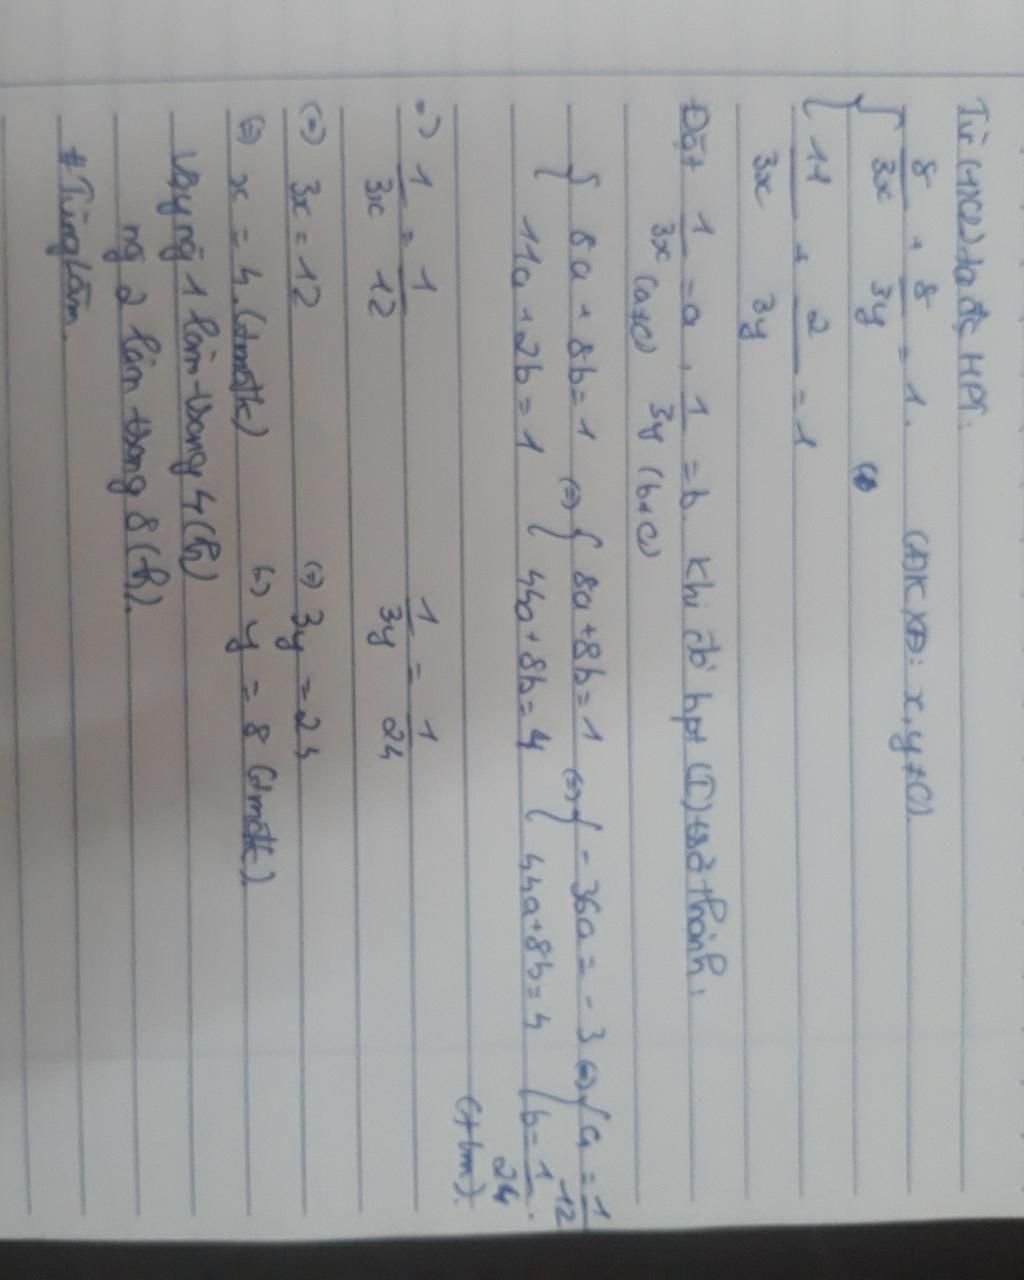 Từ (1)(2) ta đc HPT.
{ 8/3x + 8/3y = 1. (ĐKXĐ: x, y ≠ 0)
{ 11/3x + 2/3y = 1 (I)
Đặt 1/3x = a (a≠0), 1/3y = b (b≠0). Khi đó hpt (I) trở thành:
{ 8a + 8b = 1 (=) { 8a + 8b = 1 (=) { - 36a = - 3 (=) { a = 1/12
{ 11a + 2b = 1 { 44a + 8b = 4 { 44a + 8b = 4 { b = 1/24.
(t/m).
=) 1/3x = 1/12 1/3y = 1/24
(=) 3x = 12 (=) 3y = 24
(=) x = 4. (tmđk) (=) y = 8 (tmđk).
Vậy ng 1 làm trong 4 (h)
ng 2 làm trong 8 (h).
#TùngLâm.